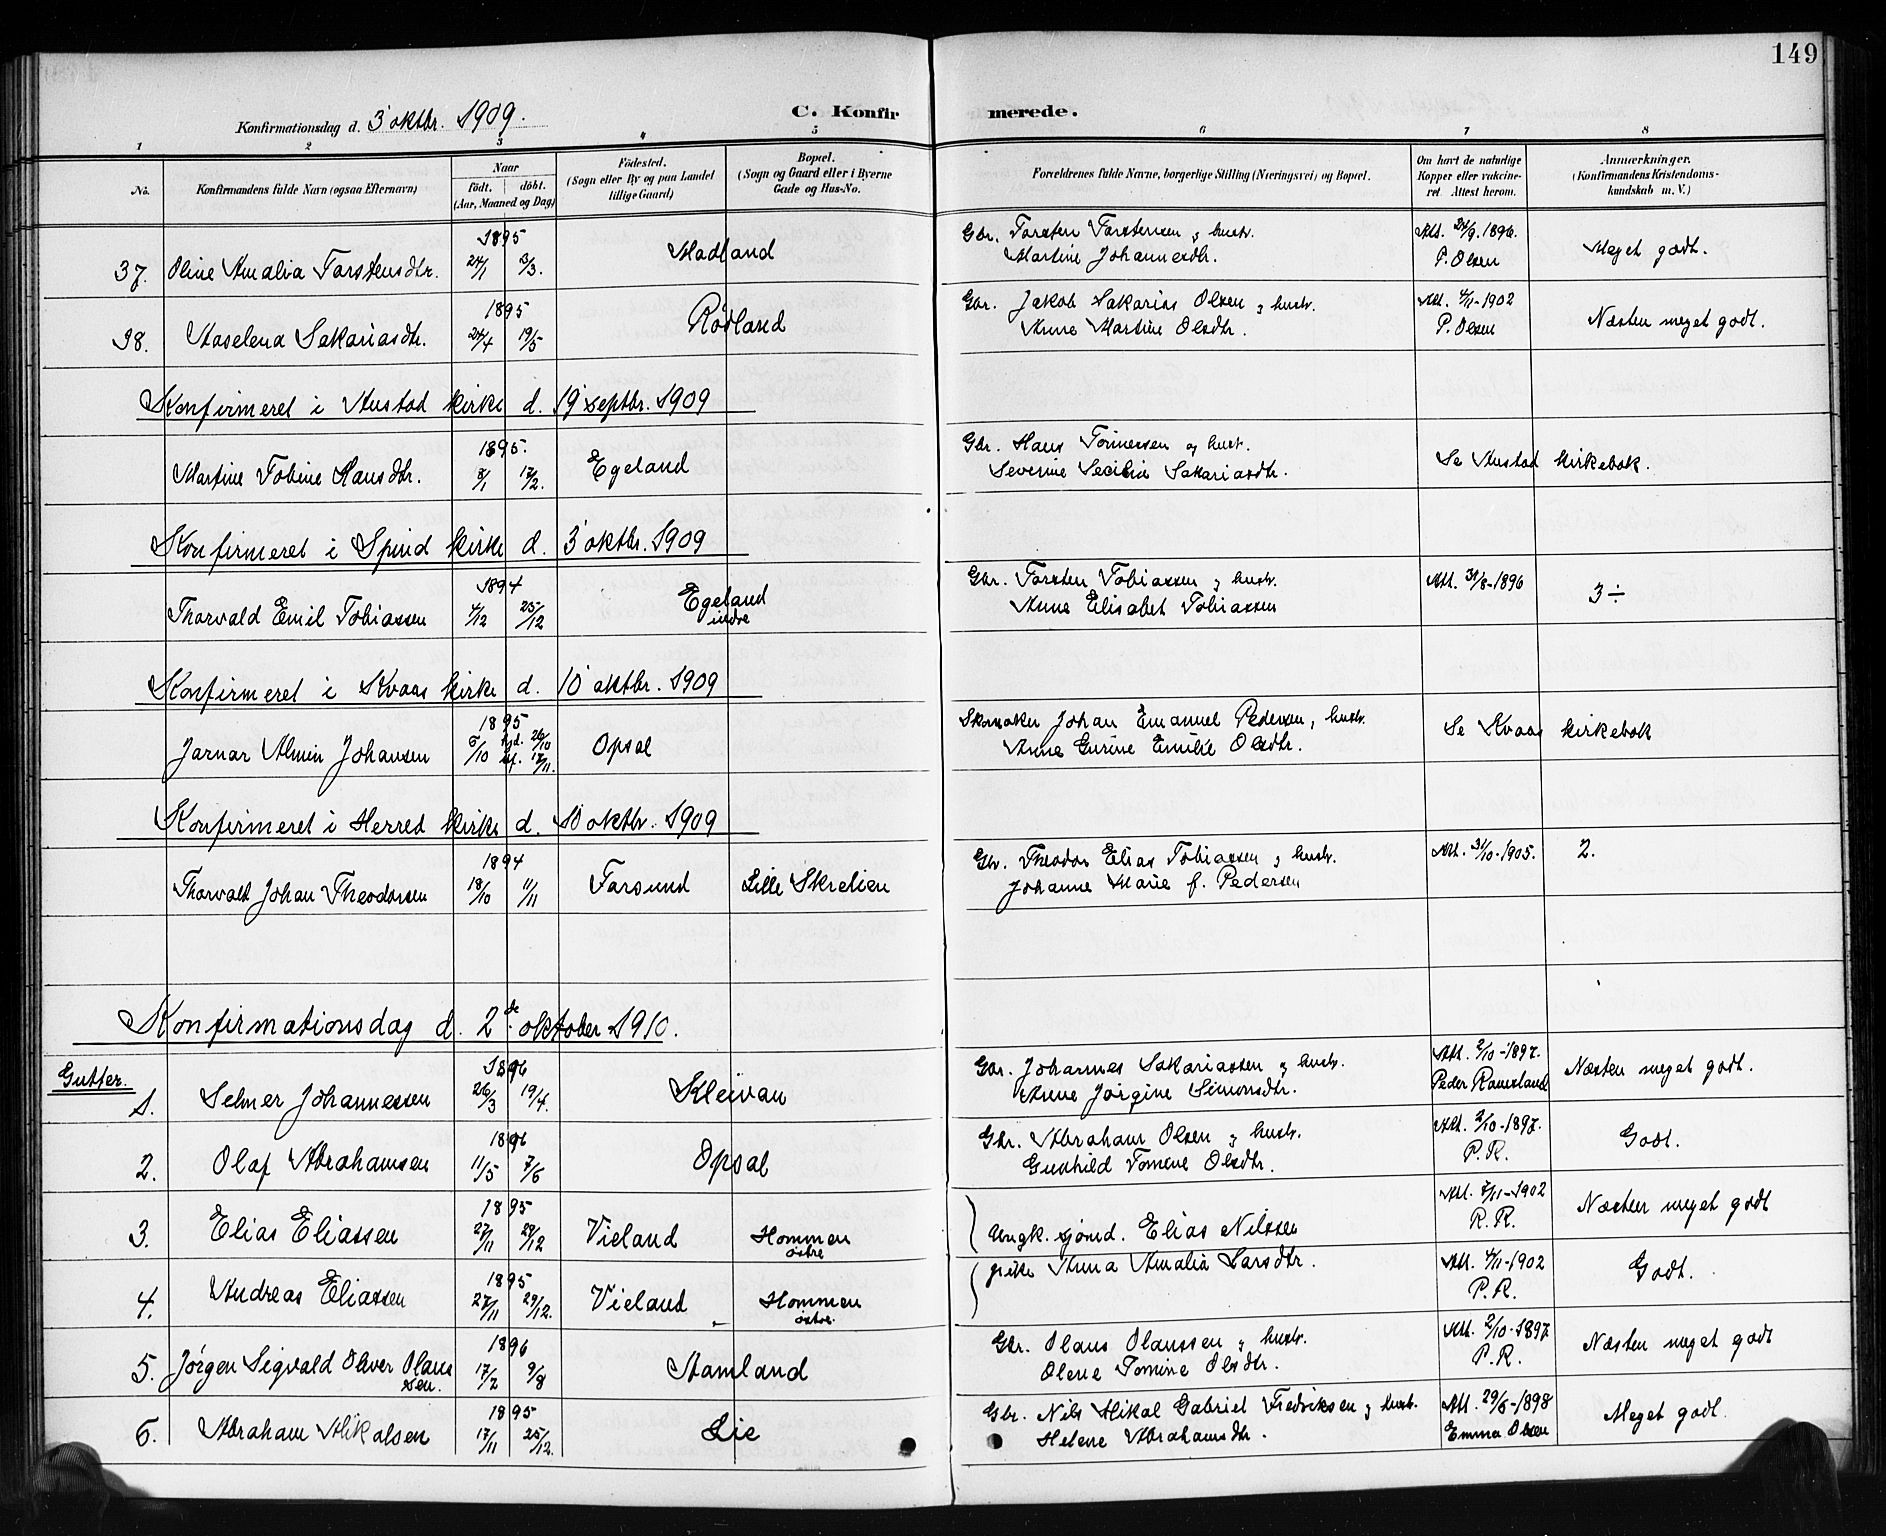 149
Konfirmationsdag d. 3 oktbr. 1909. C. Konfirmerede.
1 2 3 4 5 6 7 8
No. Konfirmandens fulde Navn (ogsaa Efternavn) Naar født. døbt. (Aar, Maaned og Dag) Fødested. (Sogn eller By og paa Landet tillige Gaard) Bopæl. (Sogn og Gaard eller i Byerne Gade og Hus-No. Forældrenes fulde Navne, borgerlige Stilling (Næringsvei) og Bopæl. Om havt de naturlige Kopper eller vakcineret. Attest herom. Anmærkninger. (Konfirmandens Kristendomskundskab m. V.)
37. Oline Amalia Torstensdtr. 1895 24/1 3/3. Madland Gbr. Torsten Torstensen og hustr. Martine Johannesdtr. Att. 24/9.1896. P. Olsen Meget godt.
38. Aaselena Sakariasdtr. 1895 24/4 19/5 Rødland Gbr. Jakob Sakarias Olsen og hustr. Anne Martine Olsdtr. Att. 4/11-1902 P. Olsen Næsten meget godt.
Konfirmeret i Austad kirke d. 19 septbr. 1909
Martine Tobine Hansdtr. 1895. 8/1 17/2. Egeland Gbr. Hans Tønnessen og hustr. Severine Secilie Sakariasdtr. Se Austad kirkebok.
Konfirmeret i Spind kirke d. 3 oktbr. 1909
Thorvald Emil Tobiassen 1894 4/12 25/12 Egeland indre Gbr. Torsten Tobiassen og hustr. Anne Elisabet Tobiassen Att. 31/8-1896 3÷
Konfirmeret i Kvaas kirke d. 10 oktbr. 1909
Jarnar Almin Johansen 1895 6/10 hjd. 26/10 17/11. Opsal Skomaker Johan Emanuel Pedersen, hustr. Anne Gurine Emilie Olsdtr. Se Kvaas kirkebok
Konfirmeret i Herred kirke d. 10 oktbr. 1909
Thorvald Johan Theodorsen 1894 18/10 11/11 Farsund Lille Skrelien Gbr. Theodor Elias Tobiassen og hustr. Johanne Marie f. Pedersen Att. 31/10-1905. 2.
Konfirmationsdag d. 2de oktober 1910.
Gutter.
1. Selmer Johannessen 1896 26/3 19/4. Kleivan Gbr. Johannes Sakariassen og hustr. Anne Jørgine Simonsdtr. Att. 2/10-1897. Peder Rauestand Næsten meget godt.
2. Olaf Abrahamsen 1896 11/5 7/6 Opsal Gbr. Abraham Olsen og hustr. Gunhild Tomine Olsdtr. Att. 2/10-1897. P. R. Godt.
3. Elias Eliassen 1895 27/11 29/12 Vieland Hommen østre Ungk. sjømd. Elias Nilssen Att. 4/11-1902 R. R. Næsten meget godt
4. Andreas Eliassen 1895 27/11 29/12. Vieland Hommen østre. pike Anna Amalia Larsdtr. Att. 4/11-1902 P. R. Godt.
5. Jørgen Sigvald Oliver Olaussen. 1896 17/2 9/8 Stamland Gbr. Olaus Olaussen og hustr. Olene Tomine Olsdtr. Att. 2/10-1897 P. R. Næsten meget godt
6. Abraham Mikalsen 1895 17/11 25/12. Lie Gbr. Nils Mikal Gabriel Fredriksen og hustr. Helene Abrahamsdtr. Att. 29/6-1898 Emma Olsen Meget godt.